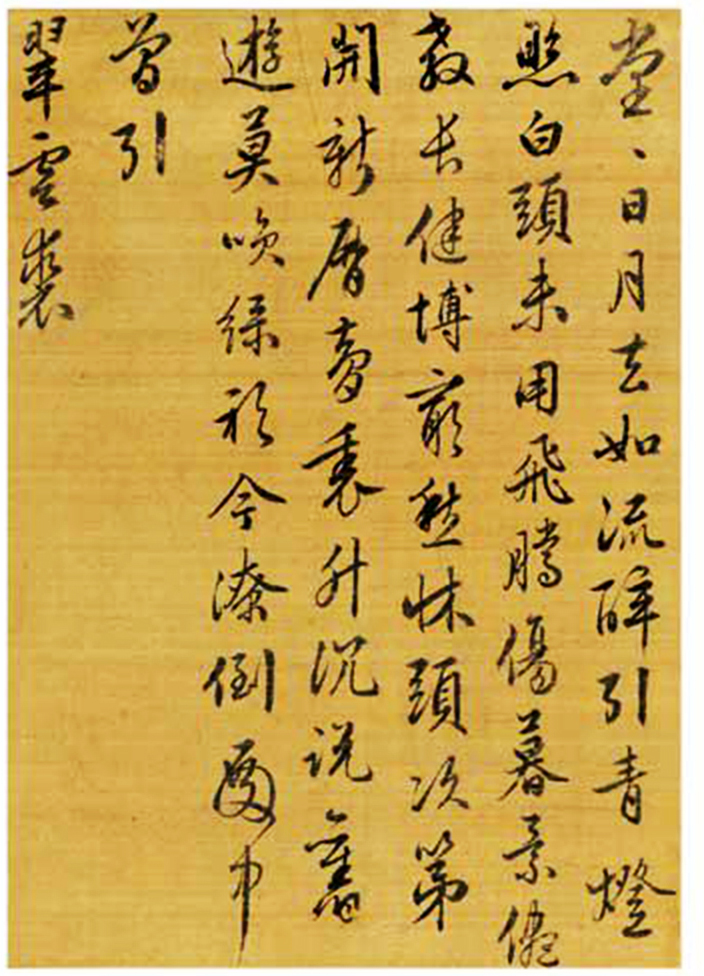 堂、日月去如流醉引青燈
照白頭未用飛騰傷暮景儘
教長健博窮愁牀頭次第
開新曆夢裏升沉說舊
遊莫咲綠衫今潦倒中
曾引
翠雲裘